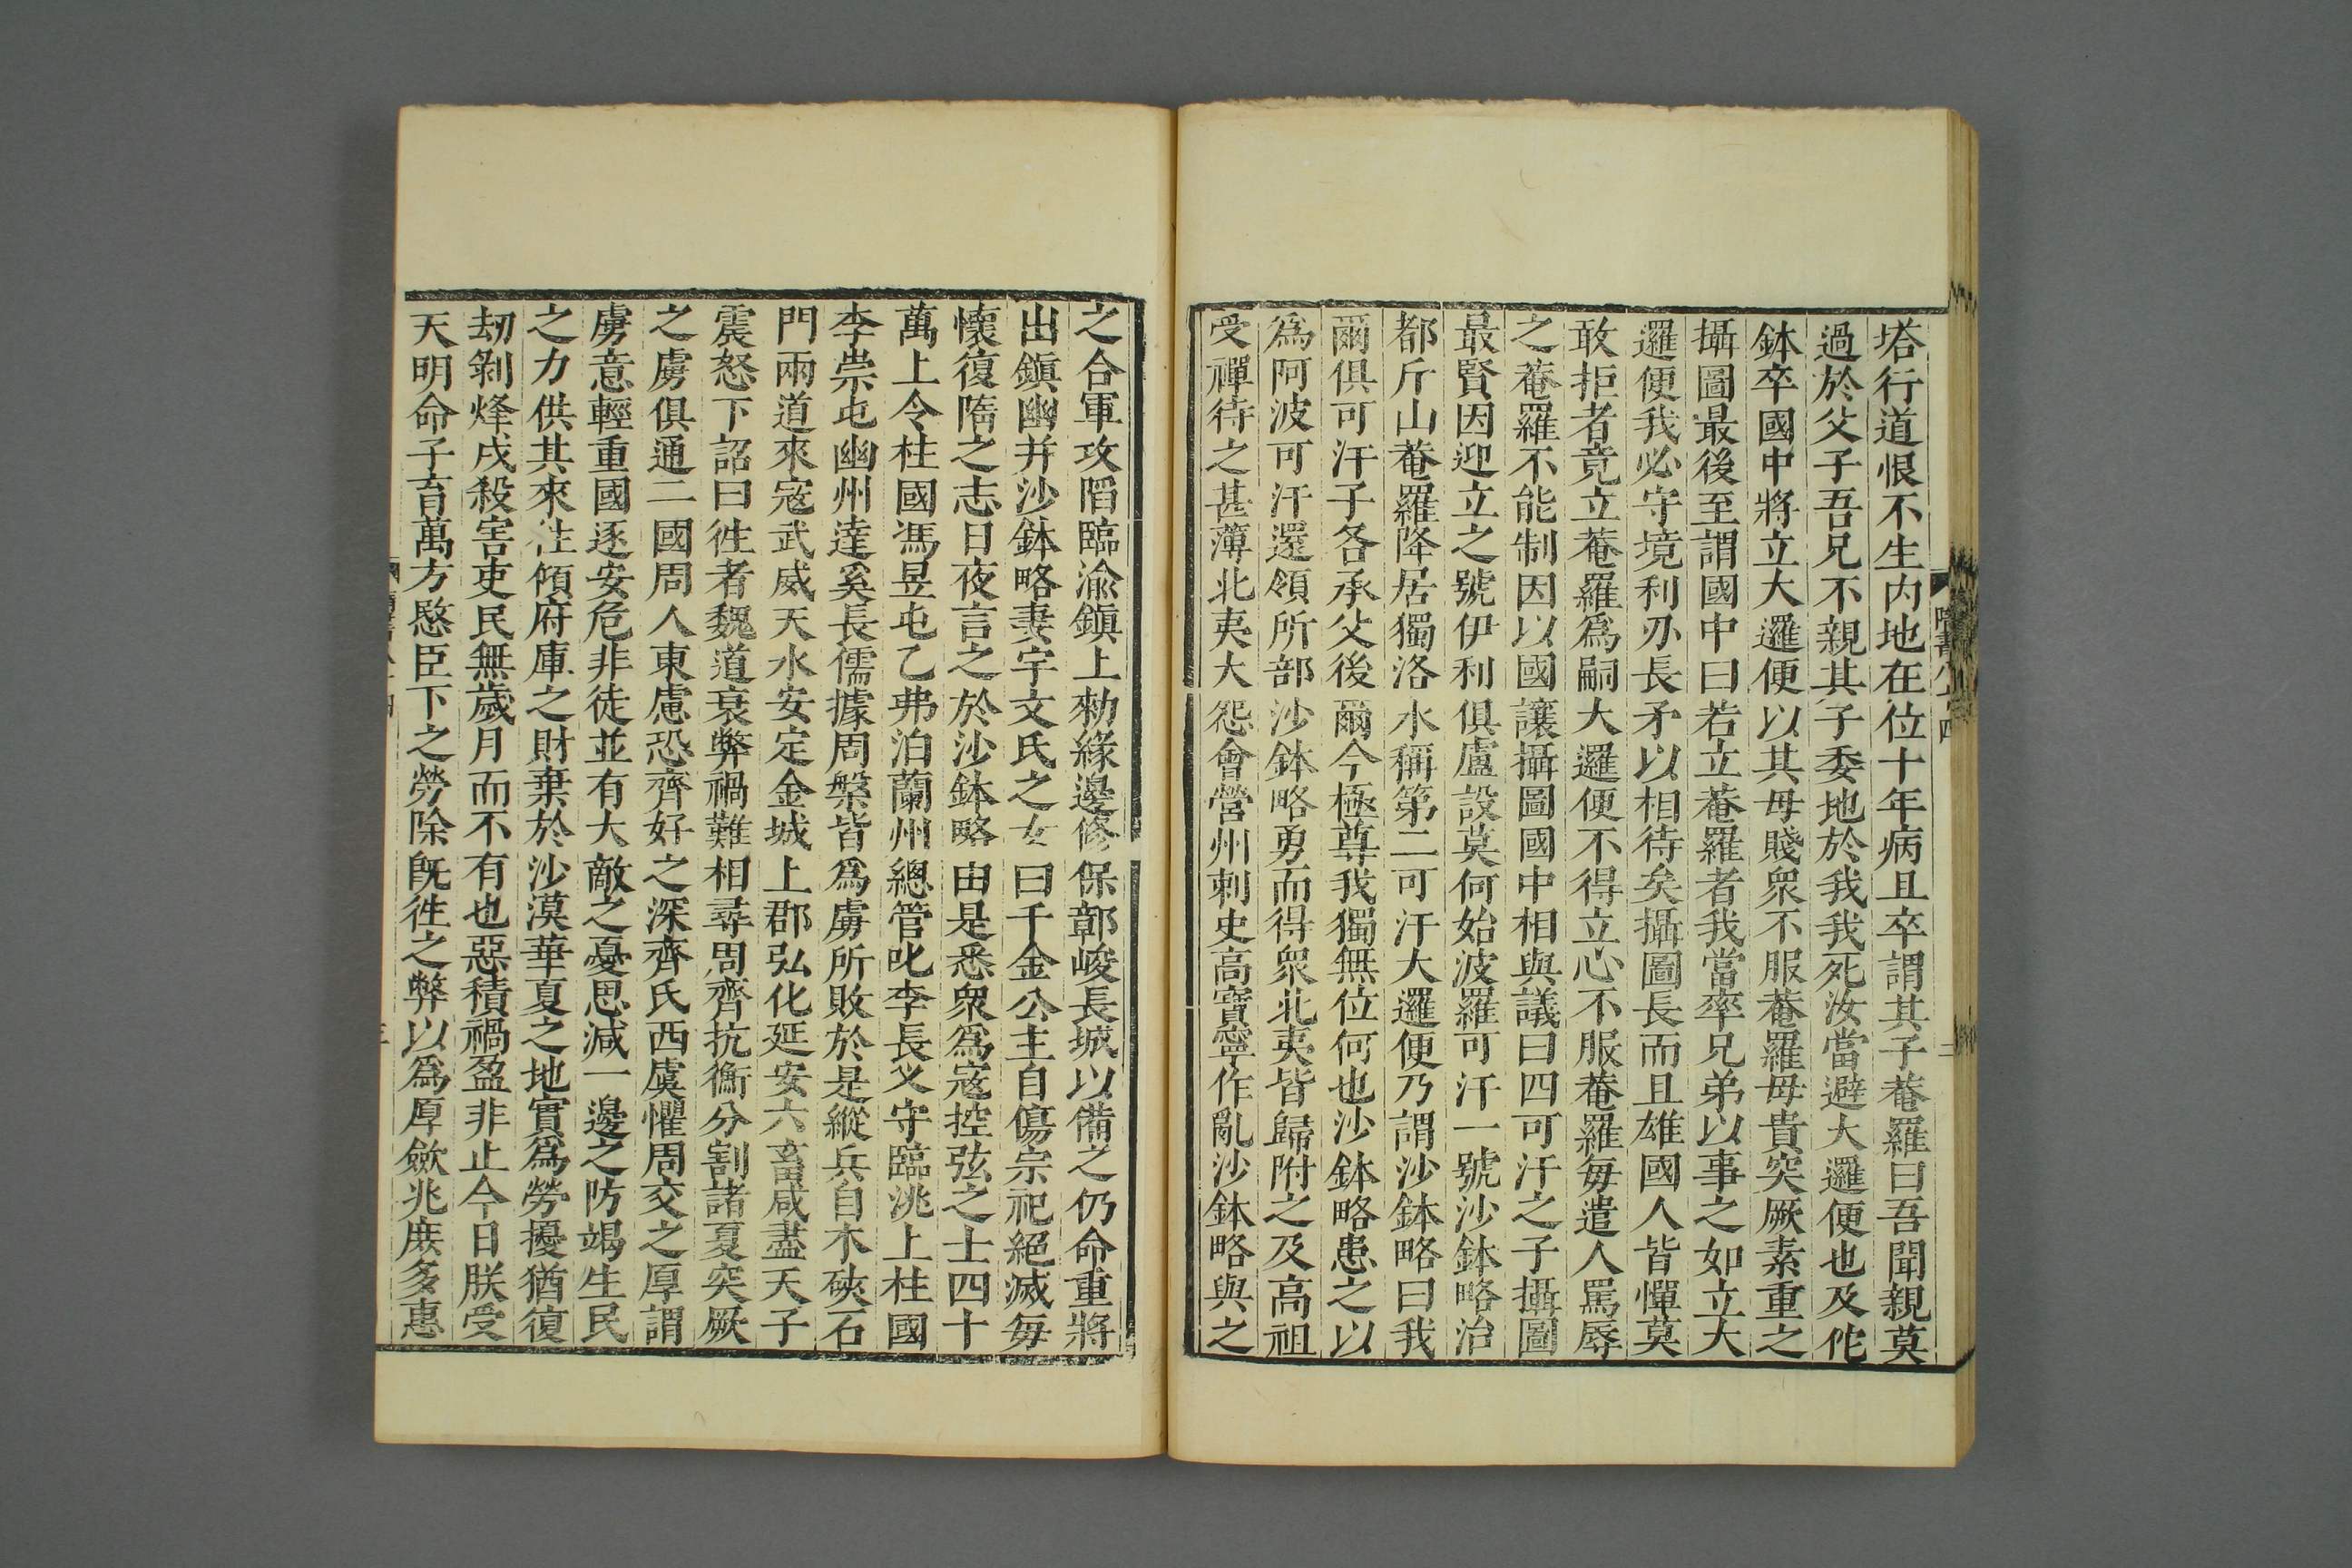 塔行道恨不生内地在位十年病且卒謂其子菴羅曰吾聞親莫
過於父子吾兄不親其子委地於我我死汝當避大邏便也及佗
鉢卒國中將立大邏便以其母賤衆不服菴羅母貴突厥素重之
攝圖最後至謂國中曰若立菴羅者我當率兄弟以事之如立大
邏便我必守境利刃長矛以相待矣攝圖長而且雄國人皆憚莫
敢拒者竟立菴羅爲嗣大邏便不得立心不服菴羅每遣人罵辱
之菴羅不能制因以國讓攝圖國中相與議曰四可汗之子攝圖
最賢因迎立之號伊利俱盧設莫何始波羅可汗一號沙鉢略治
都斤山菴羅降居獨洛水稱第二可汗大邏便乃謂沙鉢略曰我
爾俱可汗子各承父後爾今極尊我獨無位何也沙鉢略患之以
爲阿波可汗還領所部沙鉢略勇而得衆北夷皆歸附之及高祖
受禪待之甚薄北夷大怨會營州刺史高寶寧作亂沙鉢略與之
之合軍攻陷臨渝鎮上勑緣邊修保鄣峻長城以備之仍命重將
出鎮幽并沙鉢略妻宇文氏之女曰千金公主自傷宗祀絕滅每
懷復隋之志日夜言之於沙鉢略由是悉衆爲寇控弦之士四十
萬上令柱國馮昱屯乙弗泊蘭州總管叱李長叉守臨洮上柱國
李崇屯幽州達奚長儒據周槃皆爲虜所敗於是縱兵自木硤石
門兩道來寇武威天水安定金城上郡弘化延安六畜咸盡天子
震怒下詔曰徃者魏道衰弊禍難相尋周齊抗衡分割諸夏突厥
之虜俱通二國周人東慮恐齊好之深齊氏西虞懼周交之厚謂
虜意輕重國逐安危非徒並有大敵之憂思減一邊之防竭生民
之力供其來往傾府庫之財棄於沙漠華夏之地實爲勞擾猶復
刼剝烽戍殺害吏民無歲月而不有也惡積禍盈非止今日朕受
天明命子育萬方愍臣下之勞除旣徃之弊以爲厚斂兆庶多惠